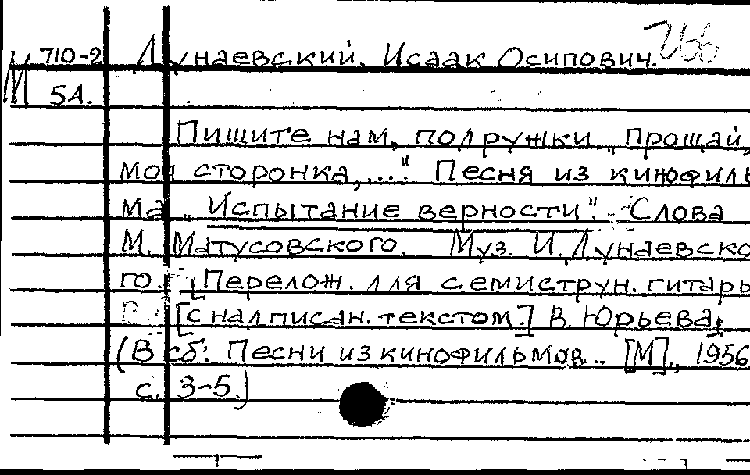 М 710-2 Дунаевский, Исаак Осипович.
5А.
Пишите нам, подружки „Прощай,
моя сторонка,..." Песня из кинофиль
ма „Испытание верности". Слова
М. Матусовского. Муз. И. Дунаевско
го. [Перелож. для семиструн. гитары
[с надписан. текстом.] В. Юрьева.
(В сб: Песни из кинофильмов.. [М], 1956
с. 3-5.)